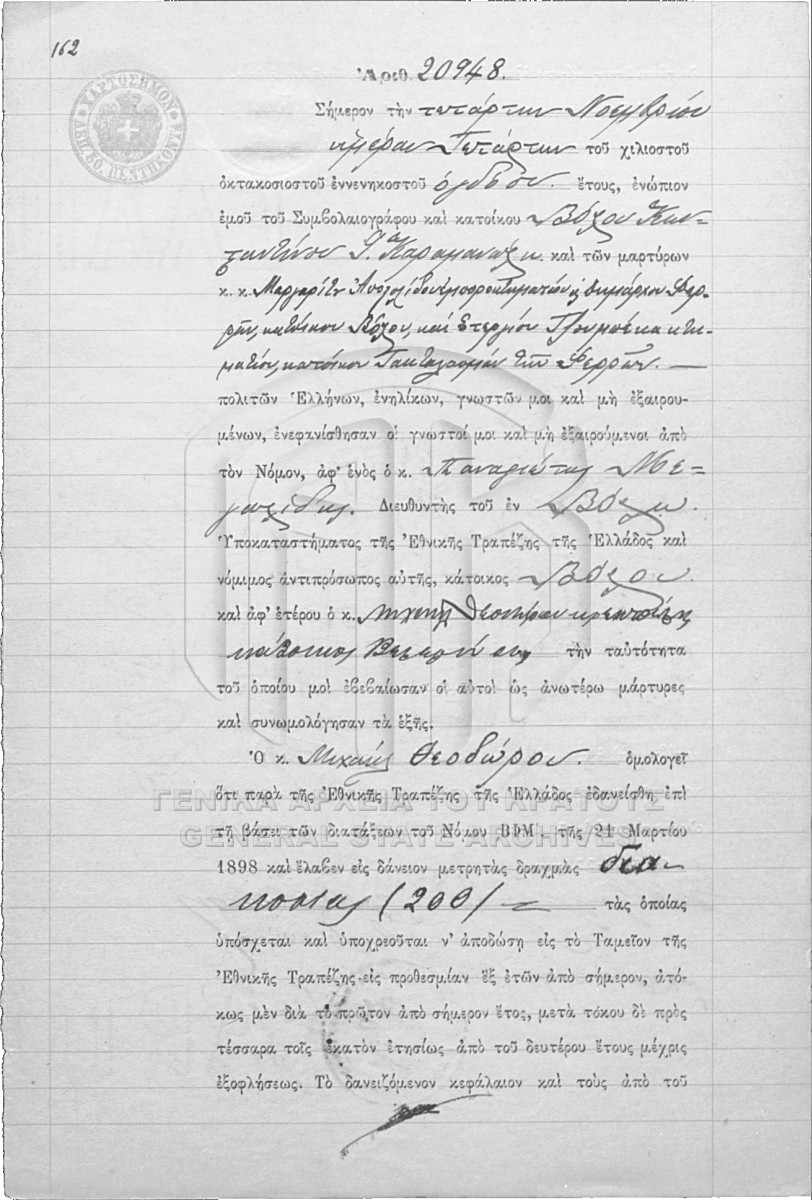 162
ΧΑΡΤΟΣΗΜΟΝ
ΛΕΠ. 50. ΠΕΝΤΗΚΟΝΤΑ
Ἀριθ. 20948.
Σήμερον τὴν τετάρτην Νοεμβρίου
ἡμέραν Τετάρτην τοῦ χιλιοστοῦ
ὀκτακοσιοστοῦ ἐννενηκοστοῦ ὀγδόου. ἔτους, ἐνώπιον
ἐμοῦ τοῦ Συμβολαιογράφου καὶ κατοίκου Βόλου Κων-
σταντίνου Γ. Καραμανώλη. καὶ τῶν μαρτύρων
κ. κ. Μαργαρίτη Ἀποστολίδου
κατοίκου Βόλου, καὶ Στεργίου
κατοίκου τῶν Φερρῶν. —
πολιτῶν Ἑλλήνων, ἐνηλίκων, γνωστῶν μοι καὶ μὴ ἐξαιρου-
μένων, ἐνεφανίσθησαν οἱ γνωστοί μοι καὶ μὴ ἐξαιρούμενοι ἀπὸ
τὸν Νόμον, ἀφ' ἑνὸς ὁ κ. Παναγιώτης
Διευθυντὴς τοῦ ἐν Βόλῳ.
Ὑποκαταστήματος τῆς Ἐθνικῆς Τραπέζης τῆς Ἑλλάδος καὶ
νόμιμος ἀντιπρόσωπος αὐτῆς, κάτοικος Βόλου.
καὶ ἀφ' ἑτέρου ὁ κ. Μιχαὴλ Θεοδώρου
κάτοικος τὴν ταὐτότητα
τοῦ ὁποίου μοὶ ἐβεβαίωσαν οἱ αὐτοὶ ὡς ἀνωτέρω μάρτυρες
καὶ συνωμολόγησαν τὰ ἑξῆς.
Ὁ κ. Μιχαὴλ Θεοδώρου. ὁμολογεῖ
ὅτι παρὰ τῆς Ἐθνικῆς Τραπέζης τῆς Ἑλλάδος ἐδανείσθη ἐπὶ
ΓΕΝΙΚΑ ΑΡΧΕΙΑ ΤΟΥ ΚΡΑΤΟΥΣ
τῇ βάσει τῶν διατάξεων τοῦ Νόμου ΒΦΜ'. τῆς 21 Μαρτίου
GENERAL STATE ARCHIVES
1898 καὶ ἔλαβεν εἰς δάνειον μετρητὰς δραχμὰς δια-
κοσίας (200) — τὰς ὁποίας
ὑπόσχεται καὶ ὑποχρεοῦται ν' ἀποδώσῃ εἰς τὸ Ταμεῖον τῆς
Ἐθνικῆς Τραπέζης εἰς προθεσμίαν ἓξ ἐτῶν ἀπὸ σήμερον, ἀτό-
κως μὲν διὰ τὸ πρῶτον ἀπὸ σήμερον ἔτος, μετὰ τόκου δὲ πρὸς
τέσσαρα τοῖς ἑκατὸν ἐτησίως ἀπὸ τοῦ δευτέρου ἔτους μέχρις
ἐξοφλήσεως. Τὸ δανειζόμενον κεφάλαιον καὶ τοὺς ἀπὸ τοῦ